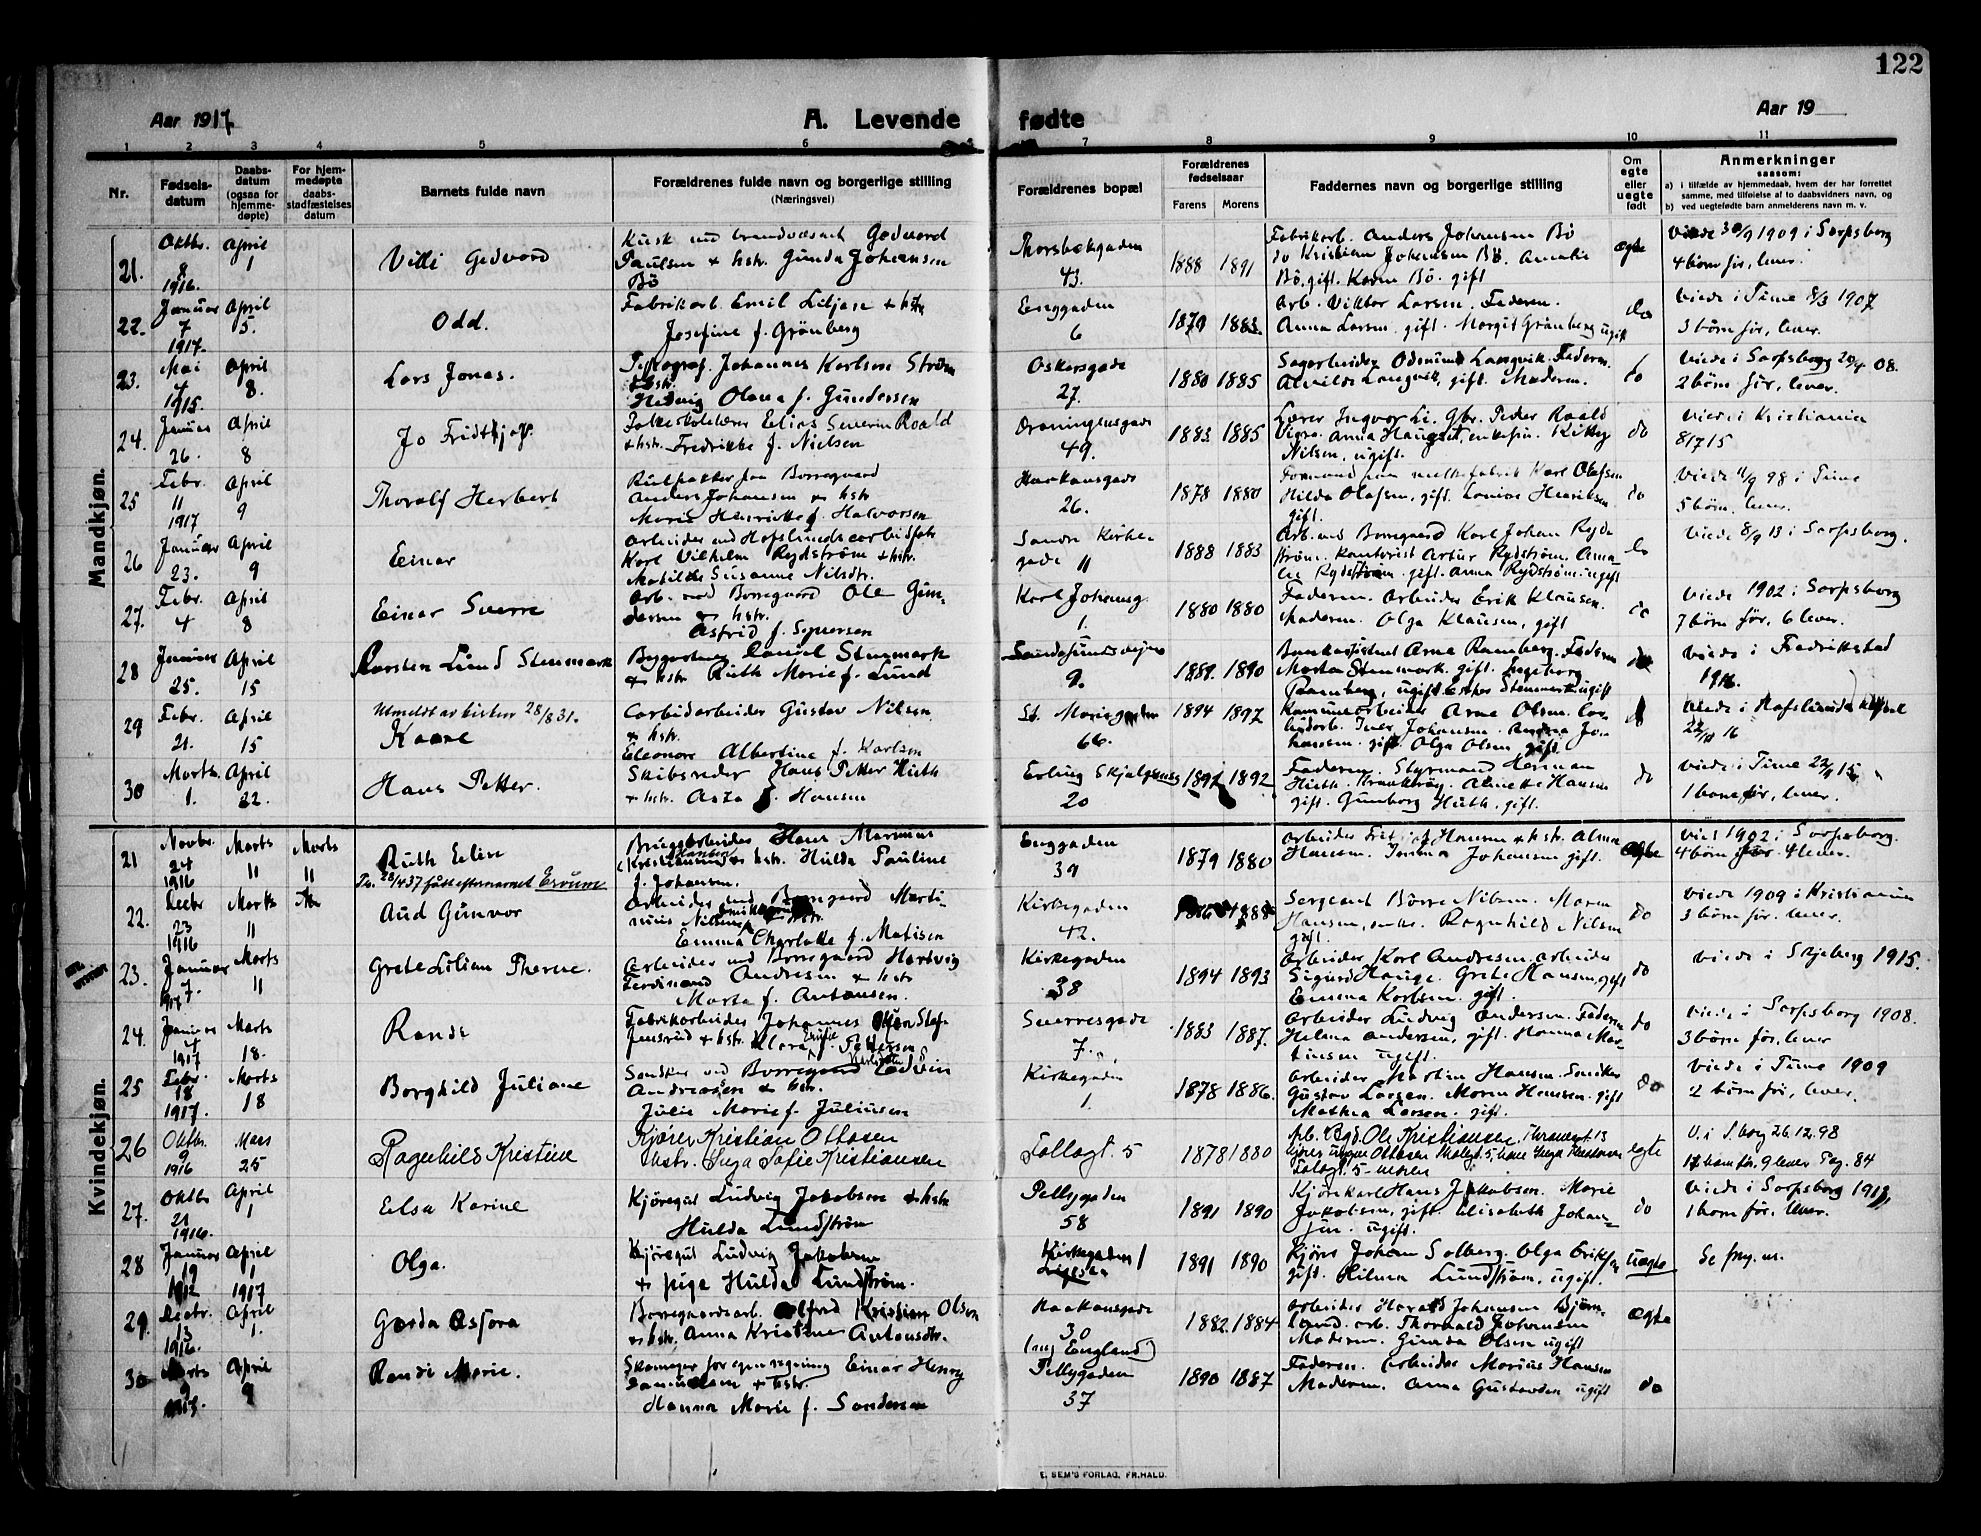 122
Aar 1917.
A. Levende fødte
Aar 19
1 2 3 4 5 6 7 8 9 10 11
Nr.
Fødsels-
datum
Daabs-
datum
(ogsaa for
hjemme-
døpte)
For hjem-
medøpte
daabs-
stadfæstelses
datum
Barnets fulde navn
Forældrenes fulde navn og borgerlige stilling
(Næringsvei)
Forældrenes bopæl
Forældrenes
fødselsaar
Farens Morens
Faddernes navn og borgerlige stilling
Om
egte
eller
uegte
født
Anmerkninger
saasom:
a) i tilfælde av hjemmedaab, hvem der har forrettet
samme, med tilføielse af to daabsvidners navn, og
b) ved uegtefødte barn anmelderens navn m. v.
Mandkjøn.
21.
Oktbr.
8
1916.
April
1
Villi Gedvard
Kusk ved brandvæsnet Gedvard
Paulsen & hstr. Gunda Johansen
Bö
Thorsbekgaden
43.
1888 1891
Fabrikarb. Anders Johansen Bö
do Kristian Johansen Bö. Amalie
Bö, gift. Karen Bö. gift
ægte
Viede 30/9 1909 i Sarpsborg
4 børn før, lever.
22.
Januar
7
1917.
April
5.
Odd.
Fabrikarb. Emil Liljan & hstr
Josefine f. Grönberg
Enggaden
6
1879 1883.
Arb. Viktor Larsen. Faderen.
Anna Larsen, gift. Margit Grönberg ugift
do
Viede i Tune 8/3 1907
3 børn før, lever.
23.
Mai
4
1915.
April
8.
Lars Jonas.
Johannes Karlsen Ström
& hstr.
Hedvig Olava f. Gundersen
Oskarsgade
27.
1880 1885
Sagarbeider Odmund Langvik. Faderen.
Alvilde Langvik, gift. Moderen.
do
Viede i Sarpsborg 20/4 08.
2 børn før, lever.
24.
Januar
26.
April
8
Jo Fridtkjof.
Folkeskolelærer Elias Severin Roald
& hstr. Fredrikke f. Nielsen
Dronningensgade
49.
1883. 1885
Lærer Ingvar Li. Gbr. Peder Roald
Vigra. Anna Haugset, enkefru. Kitty
Nilsen, ugift.
do
Viede i Kristiania
8/7 15
25
Febr.
11
1917
April
9
Thoralf Herbert
Anders Johansen & hstr
Marie Henriette f. Halvorsen
Haakonsgade
26.
1878 1880
Karl Olafsen
Hilda Olafsen, gift. Lovise Henriksen
gift.
do
Viede 11/9 98 i Tune
5 børn, lever.
26
Januar
23.
April
9
Einar
Arbeider ved Hafslunds carbidfabr
Karl Vilhelm Rydström & hstr.
Matilde Susanne Nilsdtr.
Sandre Kirke-
gade 11
1888 1883
Arb. ved Borregaard Karl Johan Ryd-
ström. Kontorist Artur Rydström. Ama-
lie Rydström. gift. Anna Rydström. ugift
do
Viede 8/9 13 i Sarpsborg.
27.
Febr.
4
April
8
Einar Sverre
Arb. ved Borregaard Ole Gun-
dersen & hstr.
Astrid f. Syversen
Karl Johansg.
1.
1880 1880
Faderen. Arbeider Erik Klausen.
Moderen. Olga Klausen, gift
do
Viede 1902 i Sarpsborg
7 børn før, 6 lever.
28
Januar
25.
April
15
Karsten Lund Stenmark
Daniel Stenmark
& hstr Ruth Marie f. Lund
Sandesundsveien
9.
1889. 1890
Bankassistent Arne Ramberg. Faderen
Marta Stenmark. gift. Ingeborg
Ramberg, ugift. Ester Stenmark ugift
do
Viede i Fredrikstad
1916.
29
Febr.
21.
April
15
Utmeldt av kirken 28/8 31.
Kaare
Carbidarbeider Gustav Nilsen
& hstr.
Eleonore Albertine f. Karlsen
St. Mariegaden
66.
1894 1897
Kommunearbeider Arne Olsen. Car-
bidarb. Iver Johansen. Andrea Jo-
hansen. gift. Olga Olsen gift.
Viede i Hafslunds kapel
22/11 16
30
Marts.
1.
April
22.
Hans Petter.
Skibsreder Hans Petter Huth
& hstr. Asta f. Hansen
Erling Skjalgsøns
20
1891 1892
Faderen. Styrmand Herman
Huth. Alvette Hansen
gift. Gunborg Huth. gift.
do
Viede i Tune
1 barn før, lever.
Kvindekjøn.
21
Novbr.
24
1916
Marts
11
Marts
11
Ruth Eline
Fe. 28/4 37 fått efternavnet Ervum
Bruggearbeider Hans Marinus
Kristiansen & hstr. Hulda Pauline
f. Johansen.
Enggaden
39
1879 1880
Arbeider Fritjof Hansen & hstr. Alma
Hansen. Johansen gift.
ægte
Vied 1902 i Sarpsborg.
4 børn før 4 lever.
22.
Decbr
23
1916
Marts
11
Aud Gunvor
Arbeider ved Borregaard Marti-
nius Nilsen & hstr.
Emma Charlotte f. Matisen
Kirkegaden
42.
1886 1888
Sergeant Börre Nilsen. Maren
Hansen, enke. Ragnhild Nilsen
gift.
do
Viede 1909 i Kristiania
3 børn før. lever.
23.
Januar
7.
1917
Marts
11
Grete Lilian Therese.
Arbeider ved Borregaard Hartvig
Ferdinand Andresen & hstr
Marta f. Antonsen.
Kirkegaden
38
1894 1893
Arbeider Karl Andresen. arbeider
Sigurd Hauge. Grete Hansen, gift
Emma Karlsen. gift.
do
Viede i Skjeberg 1915.
24.
Januar
4
1917
Marts
18.
Randi
Fabrikarbeider Johannes Olsen Staf-
jensrud & hstr. Klara Emilie f. Pettersen
Sverresgade
7.
1883 1887.
Arbeider Ludvig Andersen. Faderen
Helma Andersen, gift. Hanna Mar-
tinsen ugift.
do
Viede i Sarpsborg 1908.
3 børn før, lever
25
Febr.
18
1917.
Marts
18
Borghild Juliane
ved Borregaard Edvin
Andreassen & hstr.
Julie Marie f. Juliusen
Kirkegaden
1.
1878 1886.
Arbeider Martin Hansen. Snedker
Gustav Larsen. Maren Hansen. gift
Mathea Larsen. gift.
do
Viede i Tune 1909
2 børn før, lever.
26
Oktbr.
9
1916
Mars
25
Ragnhild Kristine
Kjører Kristian Ottosen
hstr. Inga Sofie Kristiansen
Tollbgt. 5
1878 1880
Arb. Bgd. Ole Kristiansen, Thranesgt 13
egte
V. i S.borg 26.12.98
27.
Oktbr
21
1916.
April
1
Elsa Karine
Kjøregut Ludvig Jakobsen & hstr
Hulda Lundström
Pellygaden
58
1891 1890
Kjørekarl Hans Jakobsen. Marie
Jakobsen, gift. Elisabeth Johan-
sen. ugift.
do
Viede i Sarpsborg
1 barn før, lever.
28
Januar
19
1912
April
1
1917
Olga.
Kjøregut Ludvig Jakobsen
& pige Hulda Lundström.
Kirkegaden 1
1891 1890
Kjører Johan Solberg. Olga Eriksen
gift. Hilma Lundström, ugift.
uægte
Se frg. nr.
29.
Decbr.
13
1916.
April
1.
Gerda Asfora
Borregaardsarb. Alfred Kristian Olsen
& hstr. Anna Kristine Antonsdtr.
Haakonsgade
30
(ny England)
1882. 1884
Arbeider Harald Johansen Björn-
lund. arb. Thorvald Johansen
Moderen. Gunda Olsen ugift
ægte
30
Marts
9
April
9
Randi Marie.
Skomager for egen regning Einar Henry
Samuelsen & hstr.
Hanna Marie f. Sandersen
Pellygaden
37
1890 1887
Faderen. Arbeider Marius Hansen
Moderen. Anna Gustavsen ugift
do
E. SEM'S FORLAG, FR.HALD.